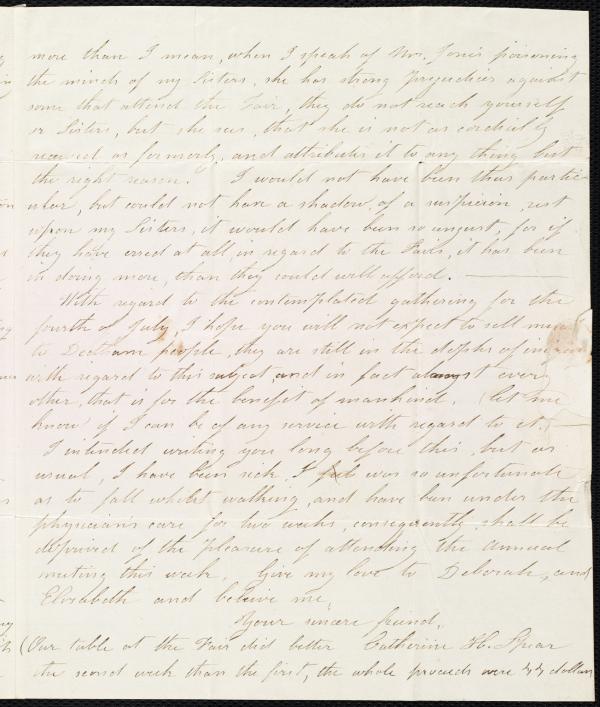 more than I mean, when I speak of Mrs. Jones poisoning
the minds of my Sisters, she has strong Prejudices against
some that attend the Fair, they do not reach yourself
or Sisters, but she sees, that she is not as cordially
received as formerly, and attributes it to any thing but
the right reason. I would not have been thus partic-
ular, but could not have a shadow, of a suspicion, rest
upon my Sisters, it would have been so unjust, for if
they have erred at all, in regard to the Fairs, it has been
in doing more, than they could well afford.
With regard to the contemplated gathering for the
fourth of July, I hope you will not expect to sell much
to Dedham people, they are still in the depths of
with regard to this subject, and in fact almost every
other, that is for the benefit of mankind. (let me
know if I can be of any service with regard to it.)
I intended writing you long before this, but as
usual, I have been sick. I was so unfortunate
as to fall whilst walking, and have been under the
physicians care for two weeks, consequently shall be
deprived of the pleasure of attending the Annual
meeting this week. Give my love to Deborah, and
Elizabeth and believe me,
Your sincere friend,
(Our table at the Fair did better Catherine H. Spear
the second week than the first, the whole proceeds were 77 dollars